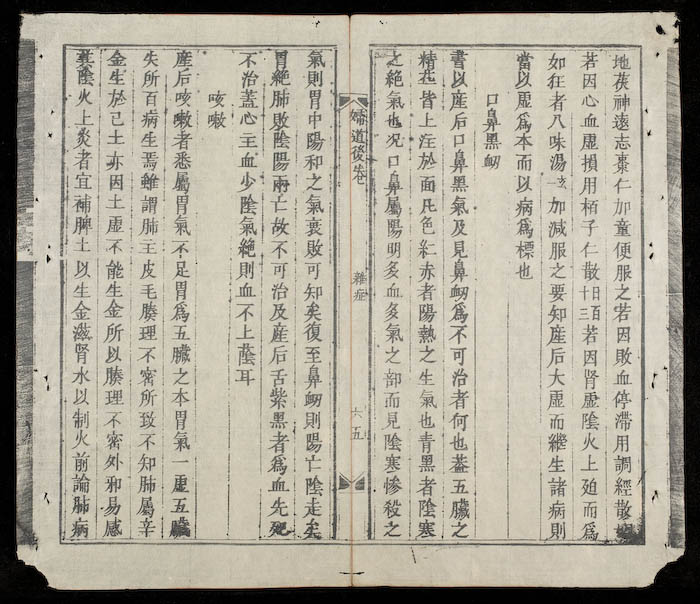 地茯神遠志棗仁加童便服之若因敗血停滯用調經散
若因心血虛損用栢子仁散百十三若因肾虛陰火上廹而爲
如狂者八味湯加減服之要知産后大虛而継生諸病則
當以虛爲本而以病爲標也
口鼻黑衂
書以産后口鼻黑氣及見鼻衂爲不可治者何也蓋五臟之
精花皆上注於面凡色紅赤者陽熱之生氣也青黑者陰寒
之絕氣也况口鼻屬陽明多血多氣之部而見陰寒惨殺之
婦道後卷
雜症
六五
氣則胃中陽和之氣衰敗可知矣復至鼻衂則陽亡陰走矣
胃絕肺敗陰陽兩亡故不可治及産后舌紫黑者爲血先死
不治蓋心主血少陰氣絕則血不上蔭耳
咳嗽
産后咳嗽者悉屬胃氣不足胃爲五臟之本胃氣一虛五臟
失所百病生焉雖謂肺主皮毛腠理不密所致不知肺屬辛
金生於己土亦因土虛不能生金所以腠理不密外邪易感
其陰火上炎者宜補脾土以生金滋腎水以制火前論肺病